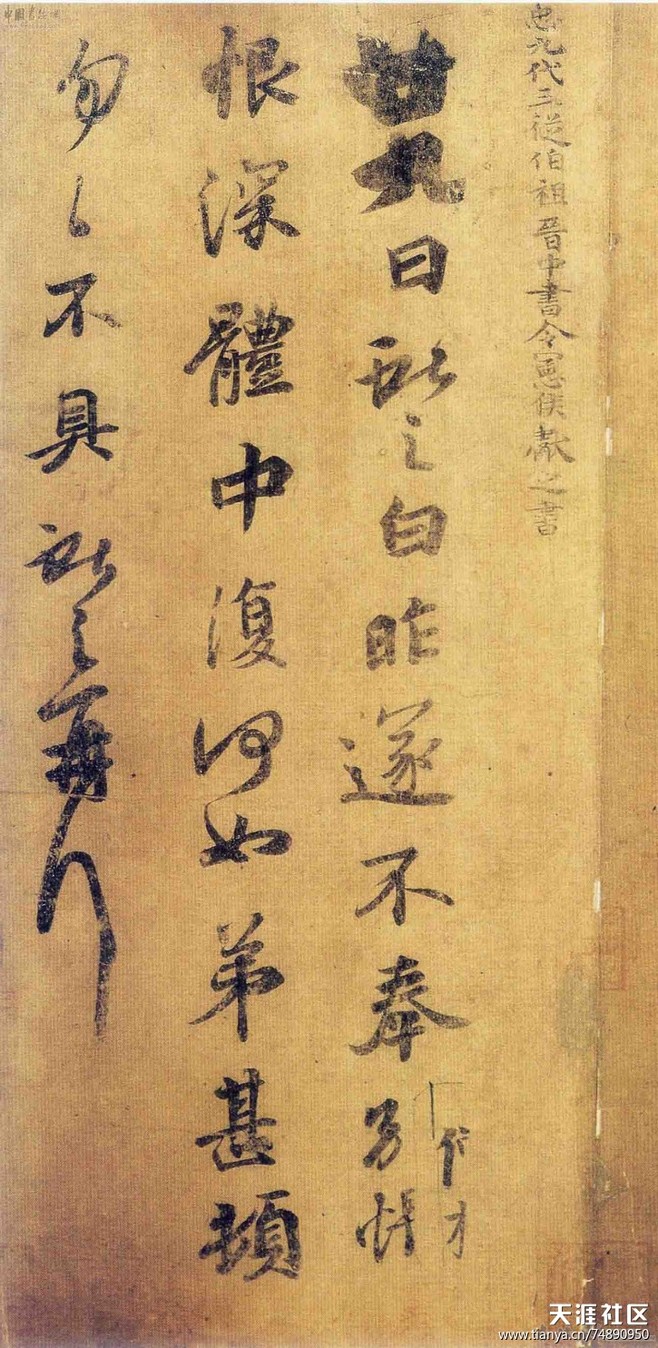 九代三從伯祖晉中書令憲侯獻之書
廿九日獻之白昨遂不奉別悵
恨深體中復何如弟甚頓
匆々不具獻之再拜
天涯社区
www.tianya.cn/74890950